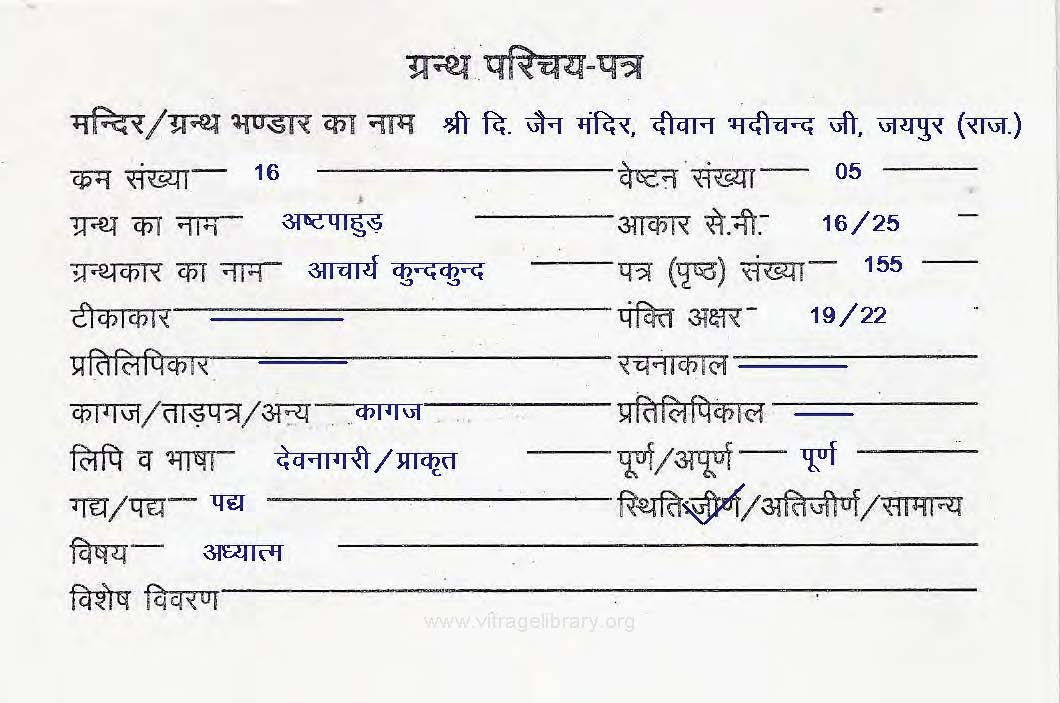 ग्रन्थ परिचय-पत्र
मन्दिर/ग्रन्थ भण्डार का नाम श्री दि. जैन मंदिर, दीवान भदीचन्द जी, जयपुर (राज.)
कम संख्या 16 वेष्टन संख्या 05
ग्रन्थ का नाम अष्टपाहुड़ आकार से.मी. 16/25
ग्रन्थकार का नाम आचार्य कुन्दकुन्द पत्र (पृष्ठ) संख्या 155
टीकाकार पंक्ति अक्षर 19/22
प्रतिलिपिकार रचनाकाल
कागज/ताड़पत्र/अन्य कागज प्रतिलिपिकाल
लिपि व भाषा देवनागरी/प्राकृत पूर्ण/अपूर्ण पूर्ण
गद्य/पद्य पद्य स्थितिःजीर्ण/अतिजीर्ण/सामान्य
विषय अध्यात्म
विशेष विवरण
www.vitragelibrary.org